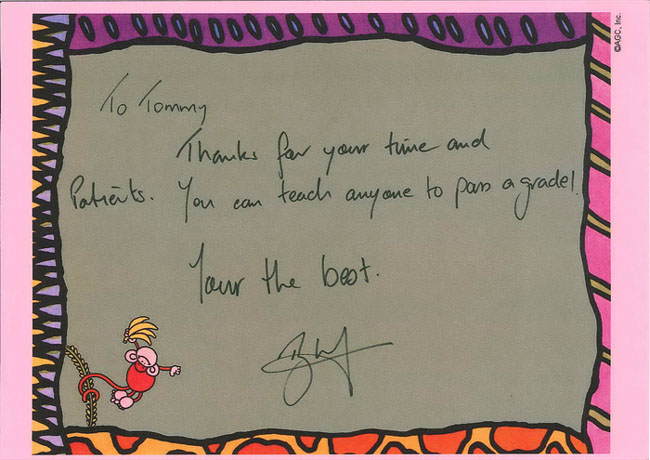 ©AGC, Inc.
To Tommy
Thanks for your time and
Patients. You can teach anyone to pass a grade!
Your the best.